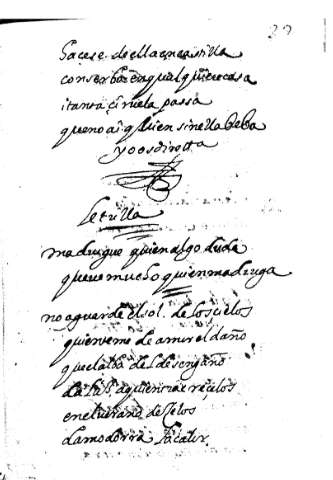 sacese de ella en castilla
conserba en qualquiera cosa
i tanta çiruela passa
que no ai quien sin ella beba
y o os dire la
Letrilla
madrugue quien algo duda
que ve mucho quien madruga
no aguarde el sol de los cielos
quien teme de amor el daño
que el alba del desengaño
da luz a quien
en el verano de çelos
la modorra